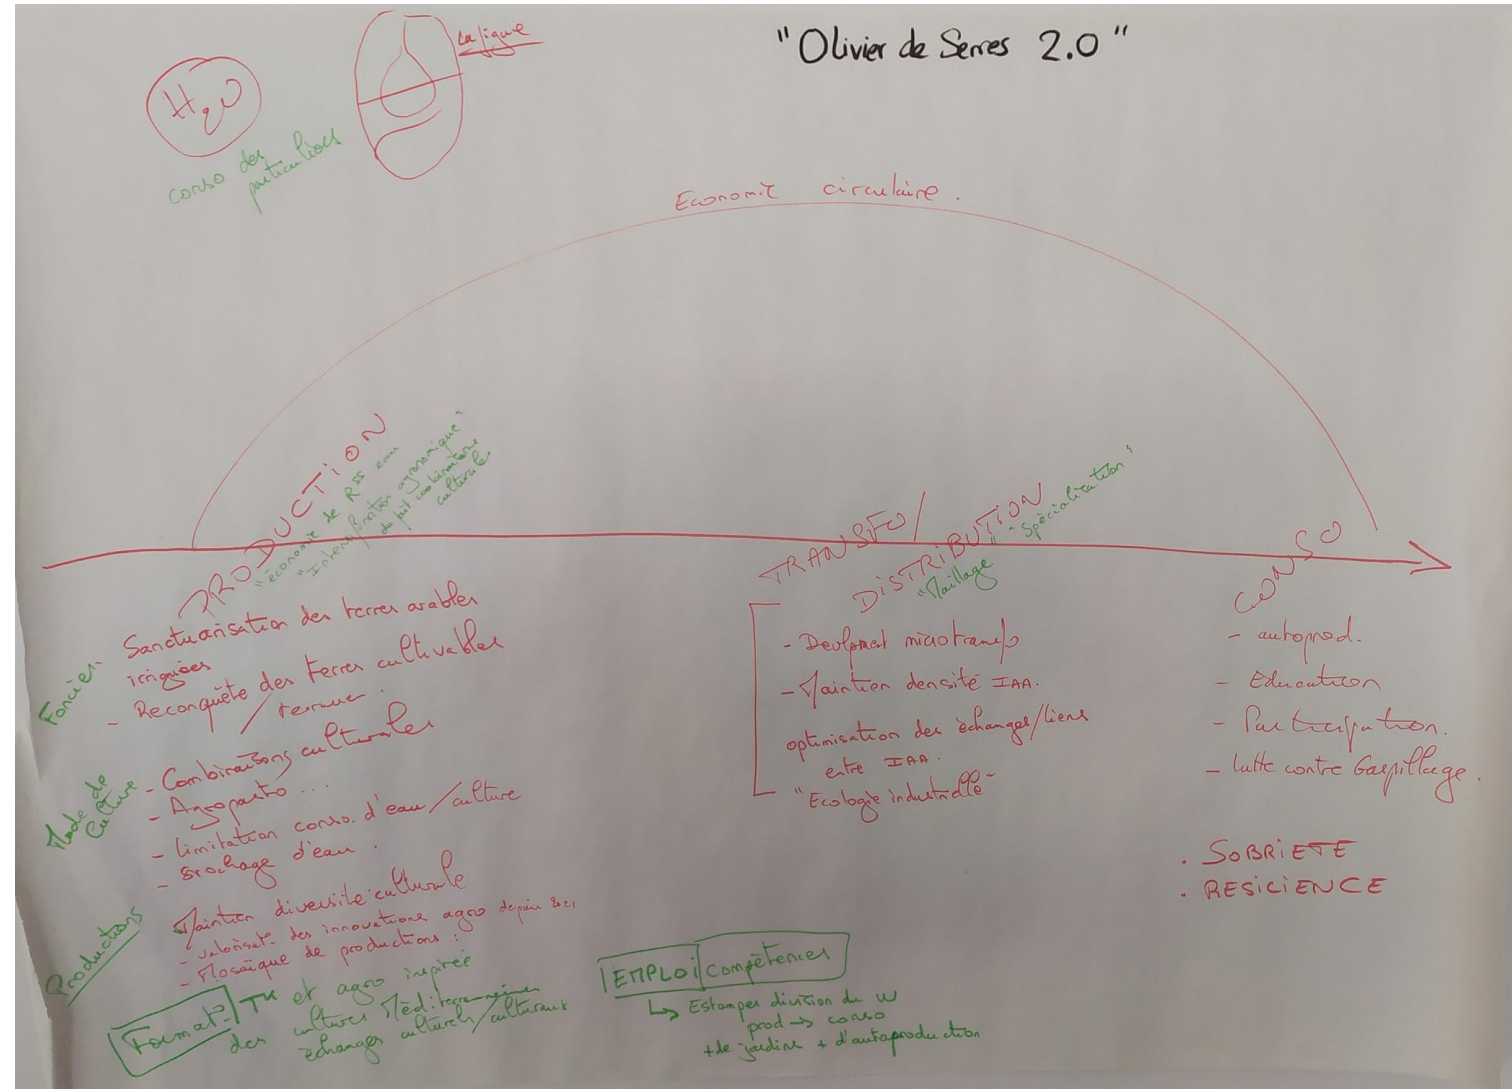 "Olivier de Serres 2.0"
H2O
conso des
particuliers
La figue
Economie circulaire.
PRODUCTION
"économie de Rss eau
"Intensification agronomique"
du pit combinaisons
culturales
Foncier
- Sanctuarisation des terres arables
irriguées
- Reconquête des terres cultivables
/ terrasse.
Mode de
Culture
- Combinaisons culturales
- Agropasto...
- limitation conso. d'eau/culture
- Stockage d'eau.
Productions
Maintien diversité culturale
- valorisat° des innovations agro depuis 2021
- Mosaïque de productions :
Format° / TK et agro inspirée
des cultures Méditerranéennes
échanges culturels/culturaux
TRANSFO/
DISTRIBUTION
"Maillage" "Spécialisation"
- Devlpment microtransfo
- Maintien densité IAA.
optimisation des échanges/liens
entre IAA.
"Ecologie industrielle"
EMPLOI Compétences
↳ Estomper division du W
prod → conso
+ de jardins + d'autoproduction
CONSO
- autoprod.
- Education
- Participation.
- lutte contre Gaspillage.
. SOBRIETE
. RESICIENCE